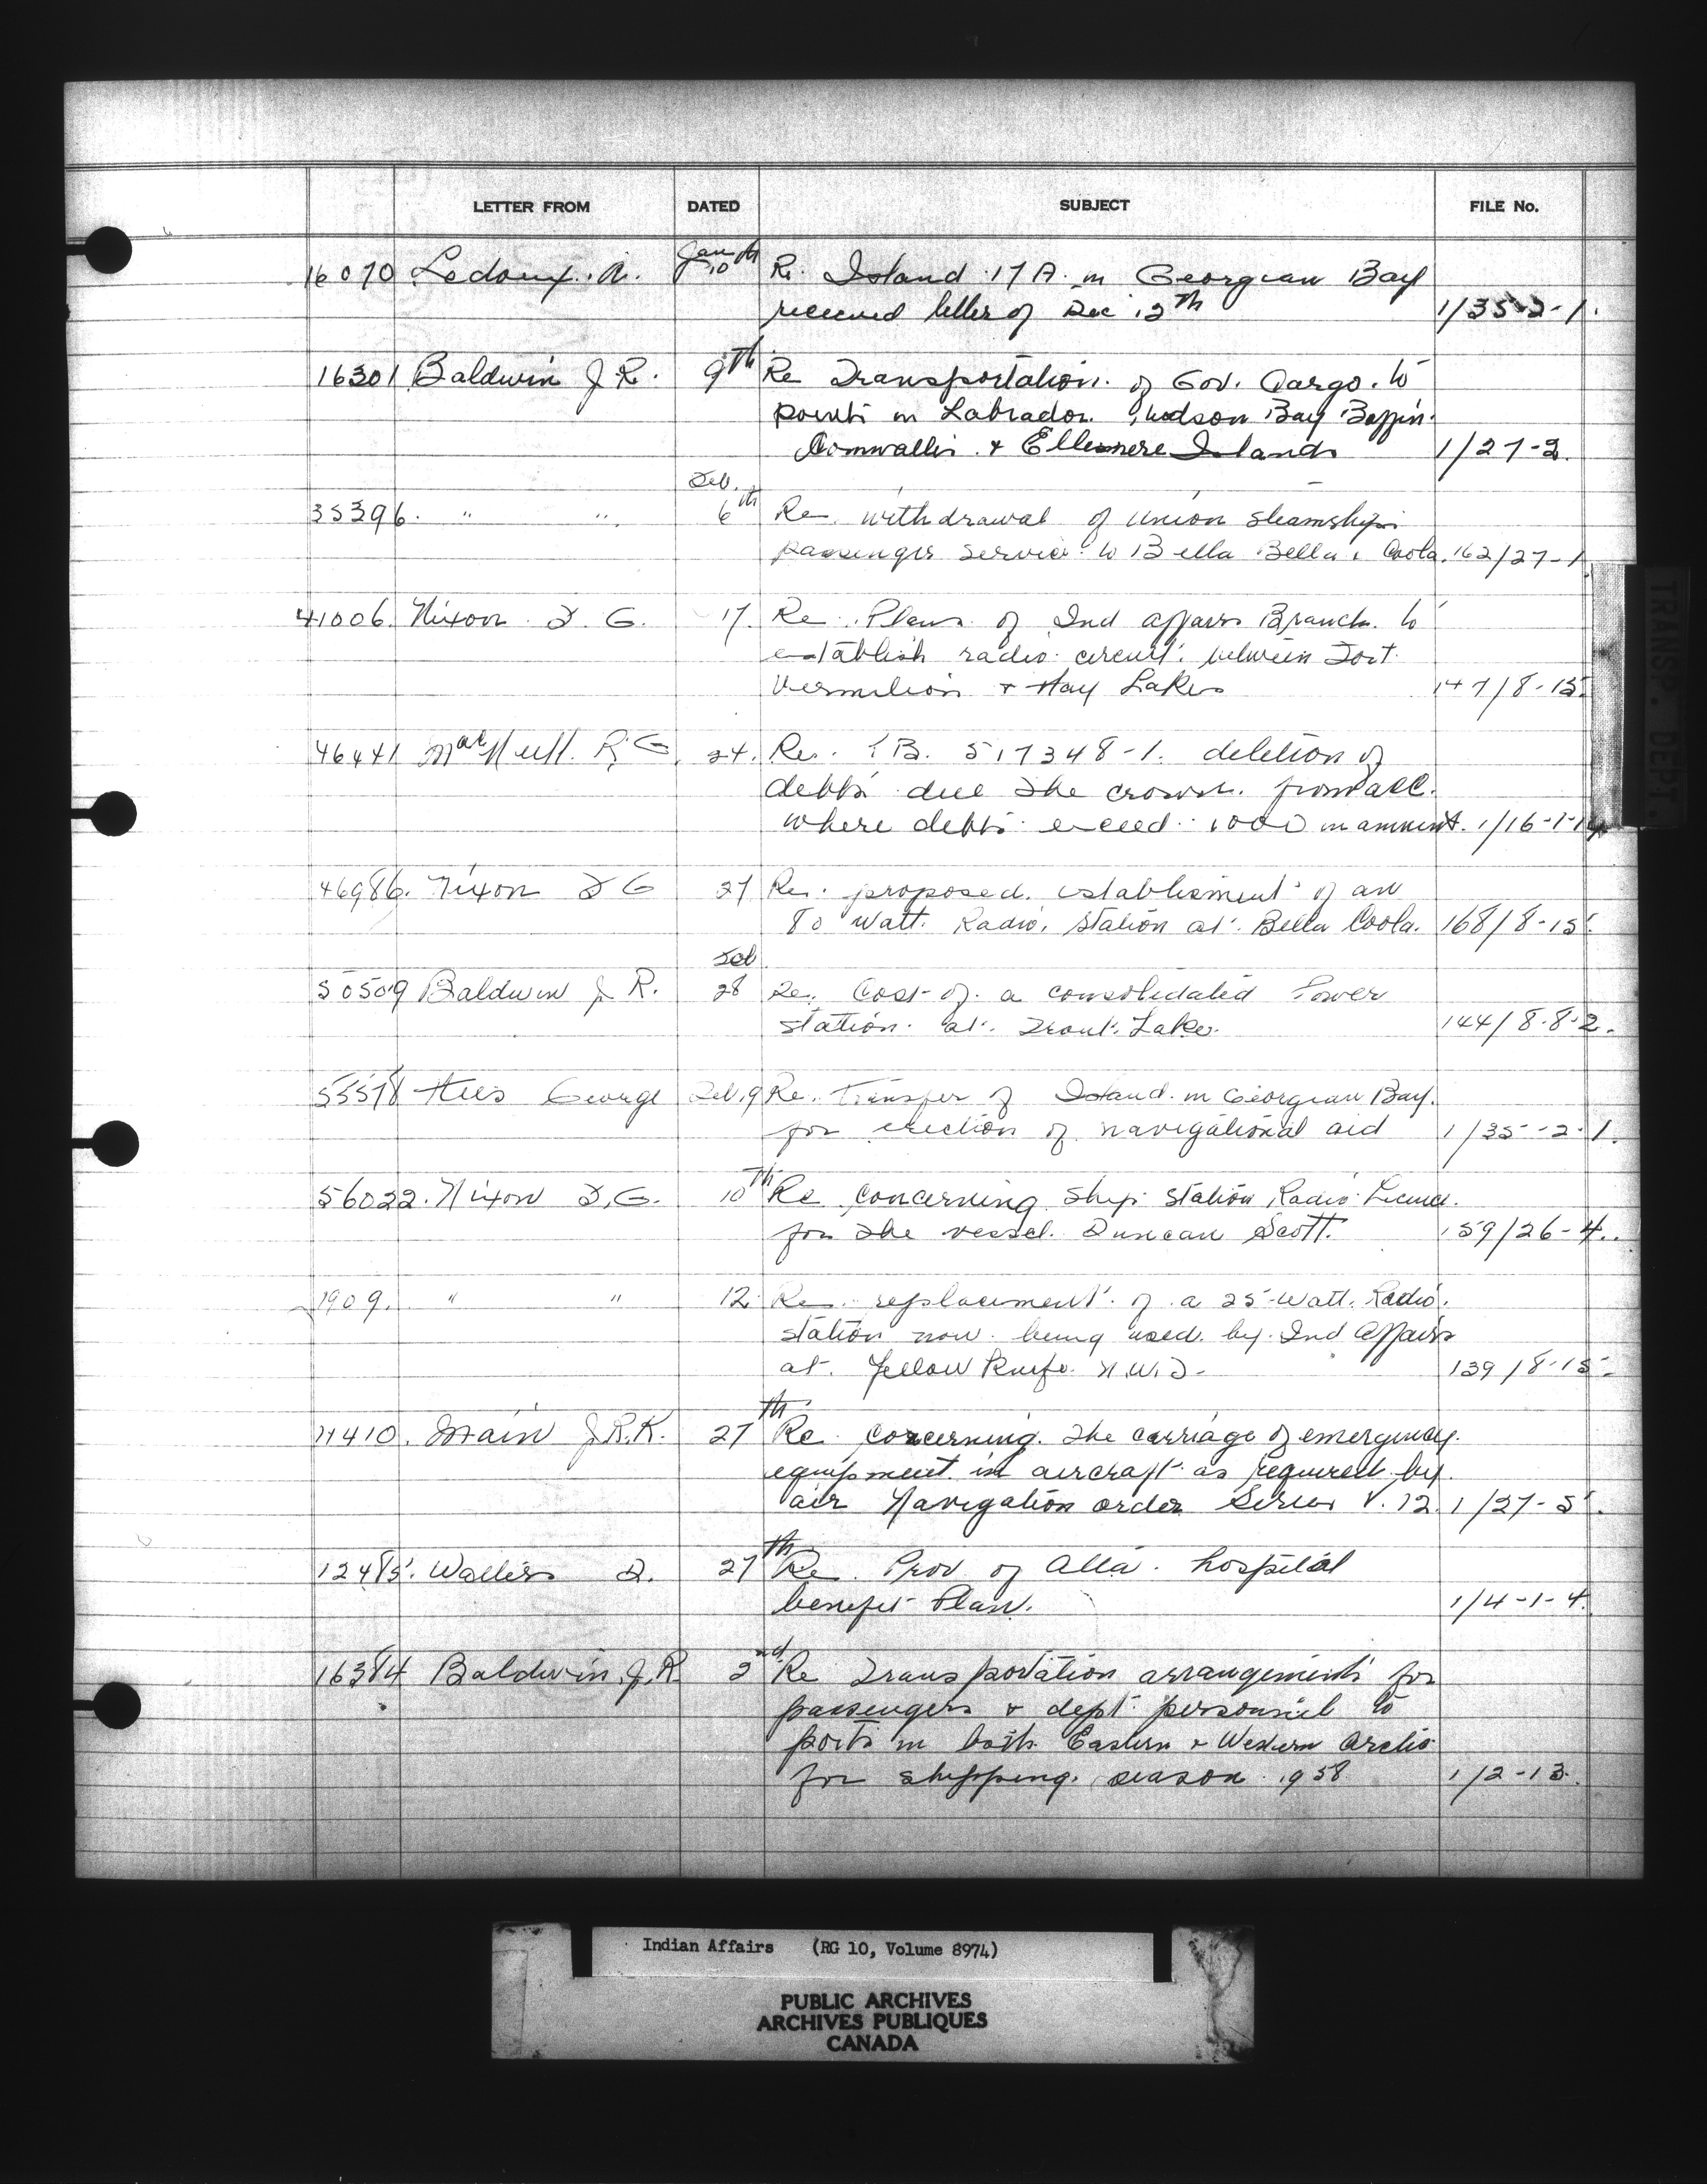 LETTER FROM DATED SUBJECT FILE No.
16070 Ledoux. A. Jan 10th Re. Island 17 A. in Georgian Bay
received letter of Dec 12th 1/35-2-1.
16301 Baldwin J R. 9th Re Transportation of Gov. Cargo. to
points in Labrador Hudson Bay Baffin.
Cornwallis & Ellesmere Islands 1/27-2.
Feb.
35396. " " 6th Re withdrawal of Union Steamships
passenger service to Bella Bella & Coola. 162/27-1
41006. Nixon D. G. 17. Re Plans of Ind affairs Branch to
establish radio circuit between Fort
Vermilion & Hay Lakes 147/8-15.
46441 MacNutt. R G. 24. Re. TB. 517348-1. deletion of
debts due the crown. from acc.
where debts exceed 1000 in amount. 1/16-1-14
46986. Nixon D G 27 Re. proposed establisment of an
80 Watt. Radio. station at Bella Coola. 168/8-15.
Feb
50509 Baldwin J R. 28 Re. Cost of a consolidated Power
station. at. Trout Lake. 144/8-8-2.
55578 Hees George Feb. 9 Re. Transfer of Island in Georgian Bay.
for erection of navigational aid 1/35-2-1.
56022. Nixon D. G. 10th Re concerning ship station Radio Licence.
for the vessel. Duncan Scott. 159/26-4.
1909. " " 12. Re. replacement of a 25 Watt. Radio.
station now being used by Ind Affairs
at. Yellow Knife N.W.T. 139/8-15-
11410. Main J.R.K. 27th Re. concerning the carriage of emergency.
equipment in aircraft as required by
air Navigation order Series V. 12. 1/27-5.
12485. Walters D. 27th Re. Prov of Alta. hospital
benefit Plan. 1/4-1-4.
16384 Baldwin. J. R. 2nd Re Transportation arrangements for
passengers & dept personnel to
ports in both Eastern & Western Arctic
for shipping season 1958 1/2-13.
TRANSP. DEPT.
Indian Affairs (RG 10, Volume 8974)
PUBLIC ARCHIVES
ARCHIVES PUBLIQUES
CANADA